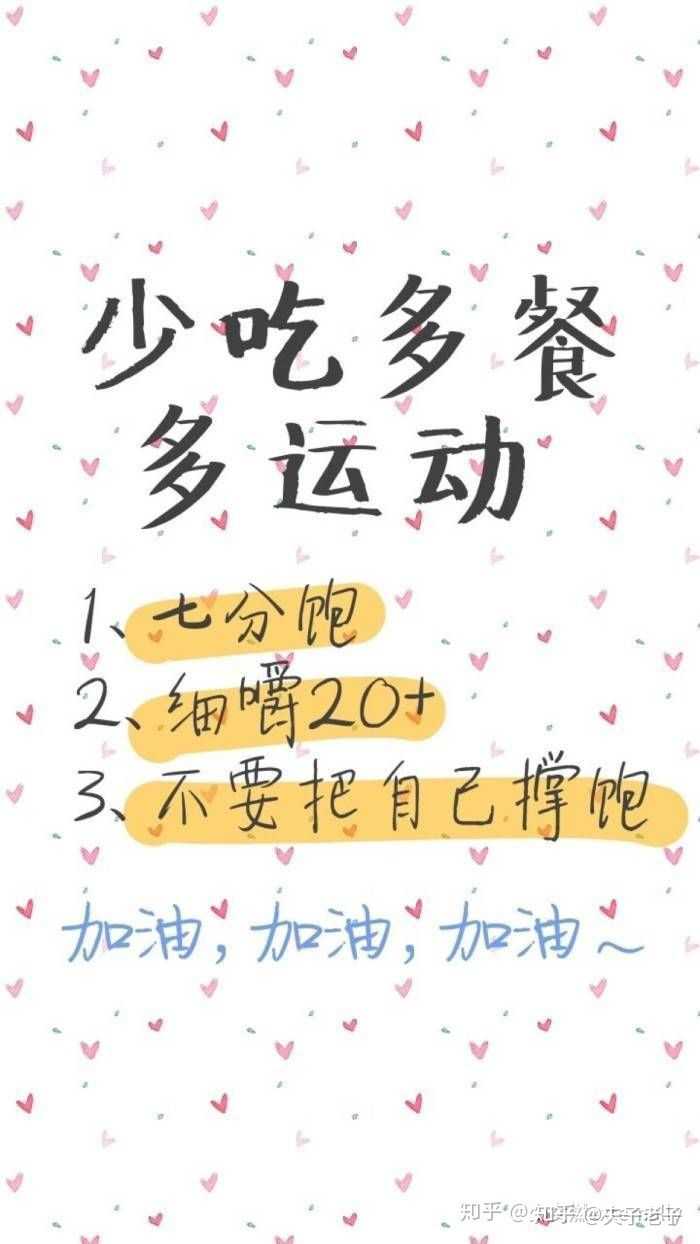 少吃多餐
多运动
1、七分饱
2、细嚼20+
3、不要把自己撑饱
加油，加油，加油～
知乎